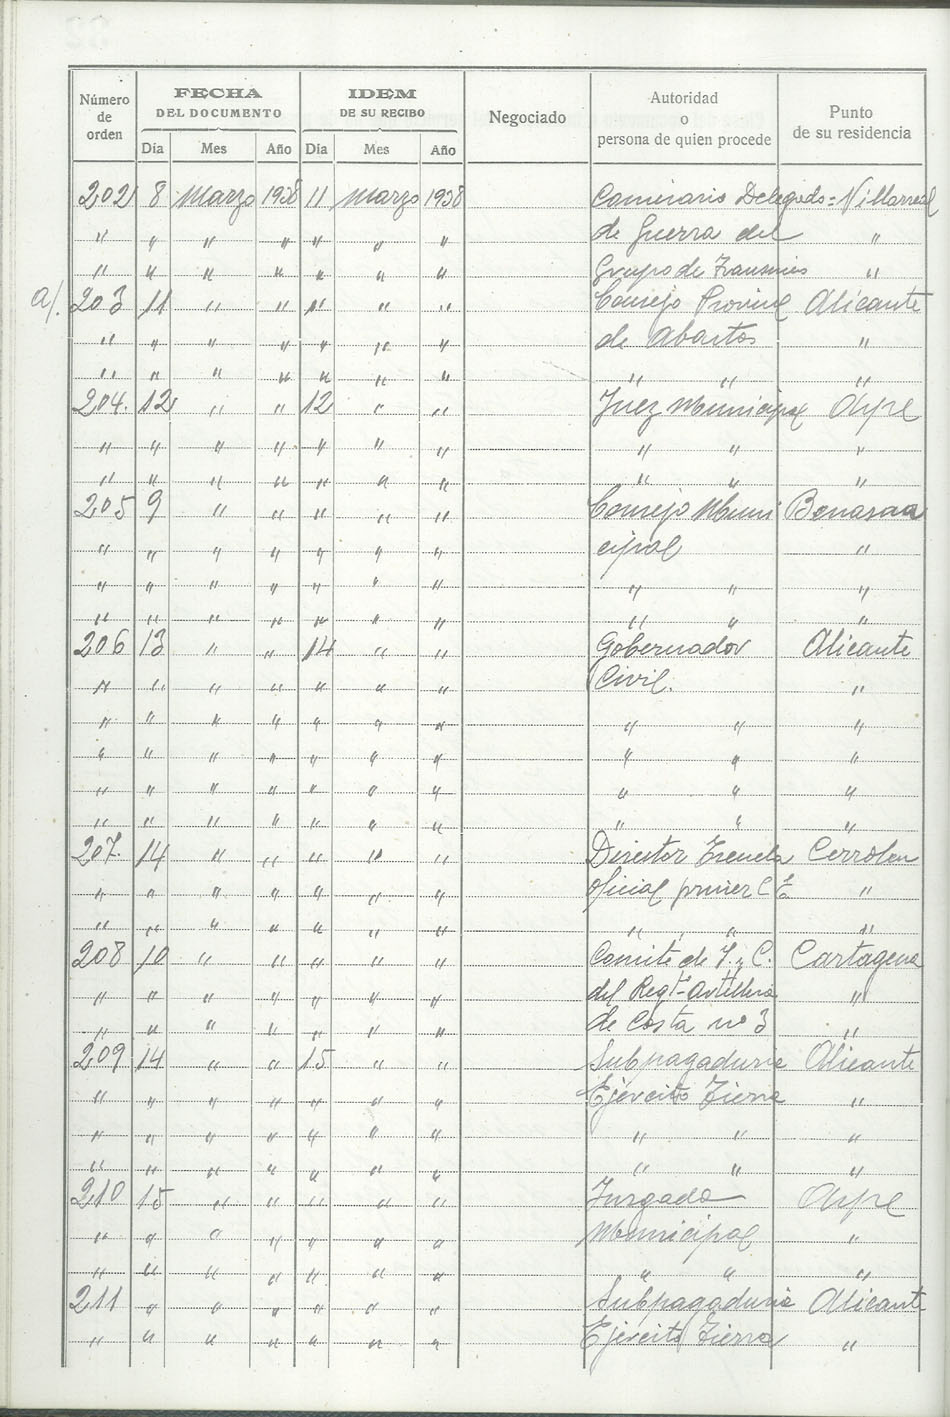 Número de orden | FECHA DEL DOCUMENTO | IDEM DE SU RECIBO | Negociado | Autoridad o persona de quien procede | Punto de su residencia
Día | Mes | Año | Día | Mes | Año
202 8 Marzo 1938 11 Marzo 1938 Comisario Delegado = Villarreal
" " " " " " " de Guerra del "
" " " " " " " Grupo de "
a/. 203 11 " " 11 " " Consejo Provincl Alicante
" " " " " " " de Abastos "
" " " " " " " " " "
204. 12 " " 12 " " Juez Municipal Aspe
" " " " " " " " " "
" " " " " " " " " "
205 9 " " " " " Consejo Muni
" " " " " " " cipal "
" " " " " " " " " "
" " " " " " " " " "
206 13 " " 14 " " Gobernador Alicante
" " " " " " " Civil. "
" " " " " " " " " "
" " " " " " " " " "
" " " " " " " " " "
" " " " " " " " " "
207. 14 " " " " " Director Escuela
" " " " " " " oficial primer "
" " " " " " " " " "
208 10 " " " " " Comité de Y. y C. Cartagena
" " " " " " " del Regt- Artilleria "
" " " " " " " de Costa nº 3 "
209 14 " " 15 " " Subpagaduria Alicante
" " " " " " " Ejército Tierra "
" " " " " " " " " "
" " " " " " " " " "
210 15 " " " " " Juzgado Aspe
" " " " " " " Municipal "
" " " " " " " " " "
211 " " " " " " Subpagaduria Alicante
" " " " " " " Ejército Tierra "